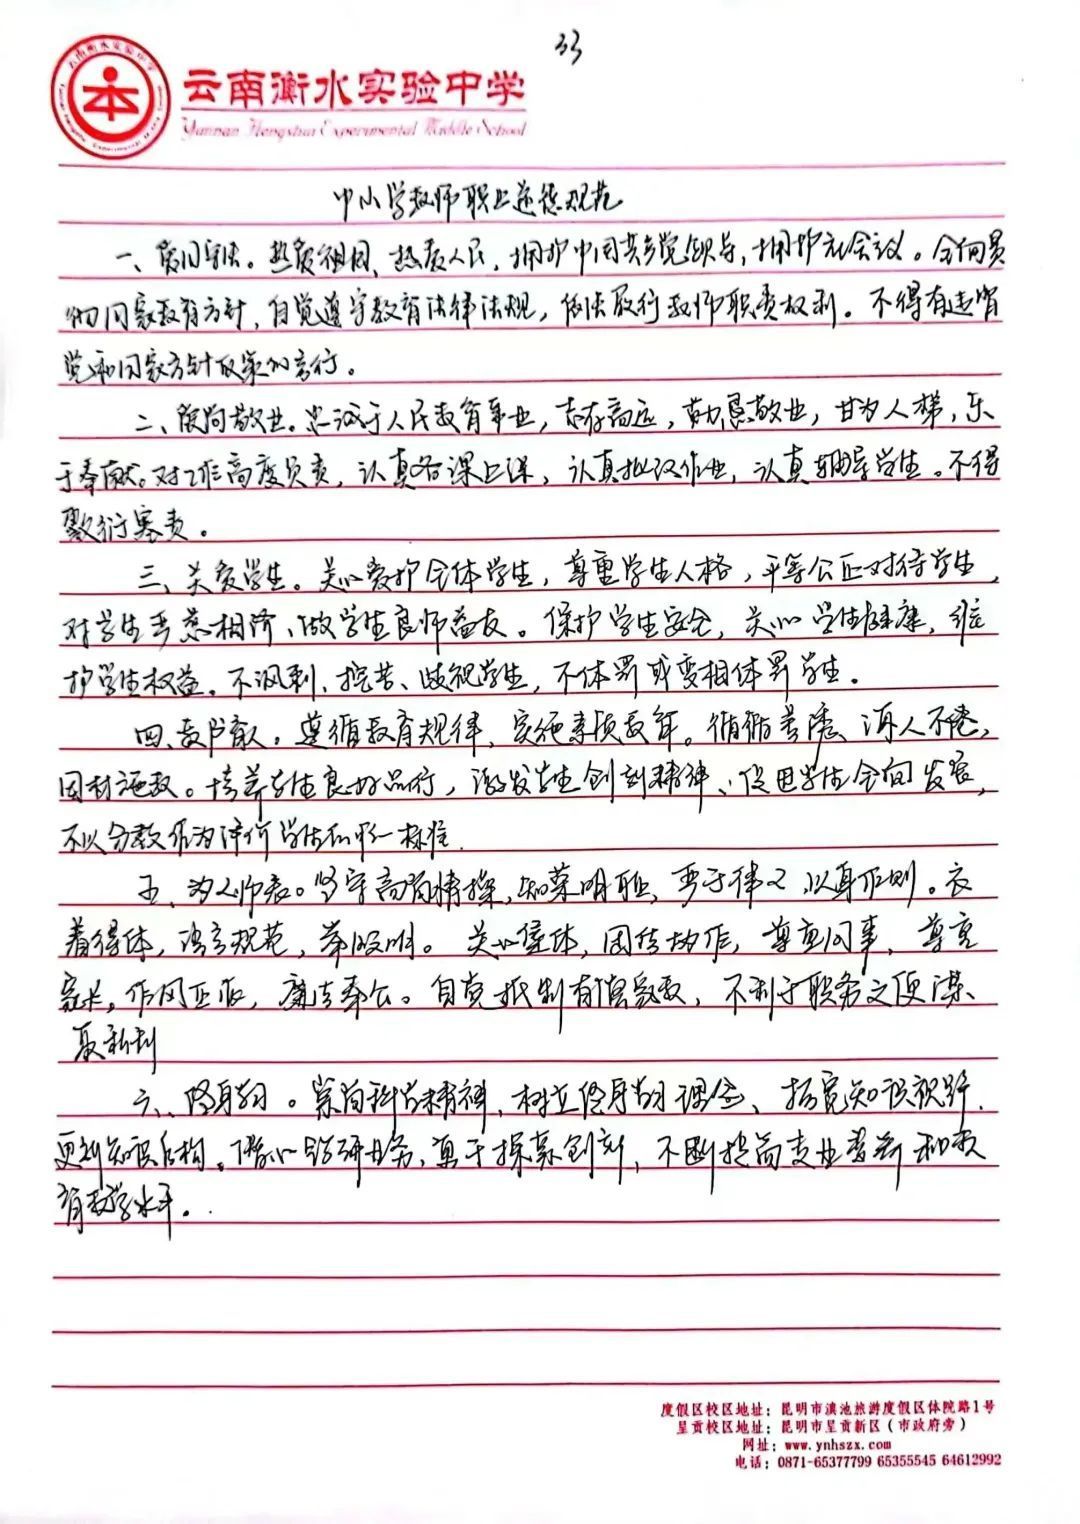 33
云南衡水实验中学
Yunnan Hengshui Experimental Middle School
中小学教师职业道德规范
一、爱国守法。热爱祖国、热爱人民，拥护中国共产党领导，拥护社会主义。全面贯
彻国家教育方针，自觉遵守教育法律法规，依法履行教师职责权利。不得有违背
党和国家方针政策的言行。
二、爱岗敬业。忠诚于人民教育事业，志存高远，勤恳敬业，甘为人梯，乐
于奉献。对工作高度负责，认真备课上课，认真批改作业，认真辅导学生。不得
敷衍塞责。
三、关爱学生。关心爱护全体学生，尊重学生人格，平等公正对待学生，
对学生严慈相济、做学生良师益友。保护学生安全，关心学生健康，维
护学生权益。不讽刺、挖苦、歧视学生，不体罚或变相体罚学生。
四、教书育人。遵循教育规律，实施素质教育。循循善诱、诲人不倦，
因材施教。培养学生良好品行，激发学生创新精神、促进学生全面发展，
不以分数作为评价学生的唯一标准。
五、为人师表。坚守高尚情操，知荣明耻，严于律己 以身作则。衣
着得体，语言规范，举止文明。关心集体，团结协作，尊重同事，尊重
家长。作风正派，廉洁奉公。自觉抵制有偿家教，不利于职务之便谋
取私利
六、终身学习。崇尚科学精神，树立终身学习理念、拓宽知识视野，
更新知识结构。潜心钻研业务，勇于探索创新，不断提高专业素养和教
育教学水平。
度假区校区地址：昆明市滇池旅游度假区体院路1号
呈贡校区地址：昆明市呈贡新区（市政府旁）
网址：www.ynhszx.com
电话：0871-65377799 65355545 64612992